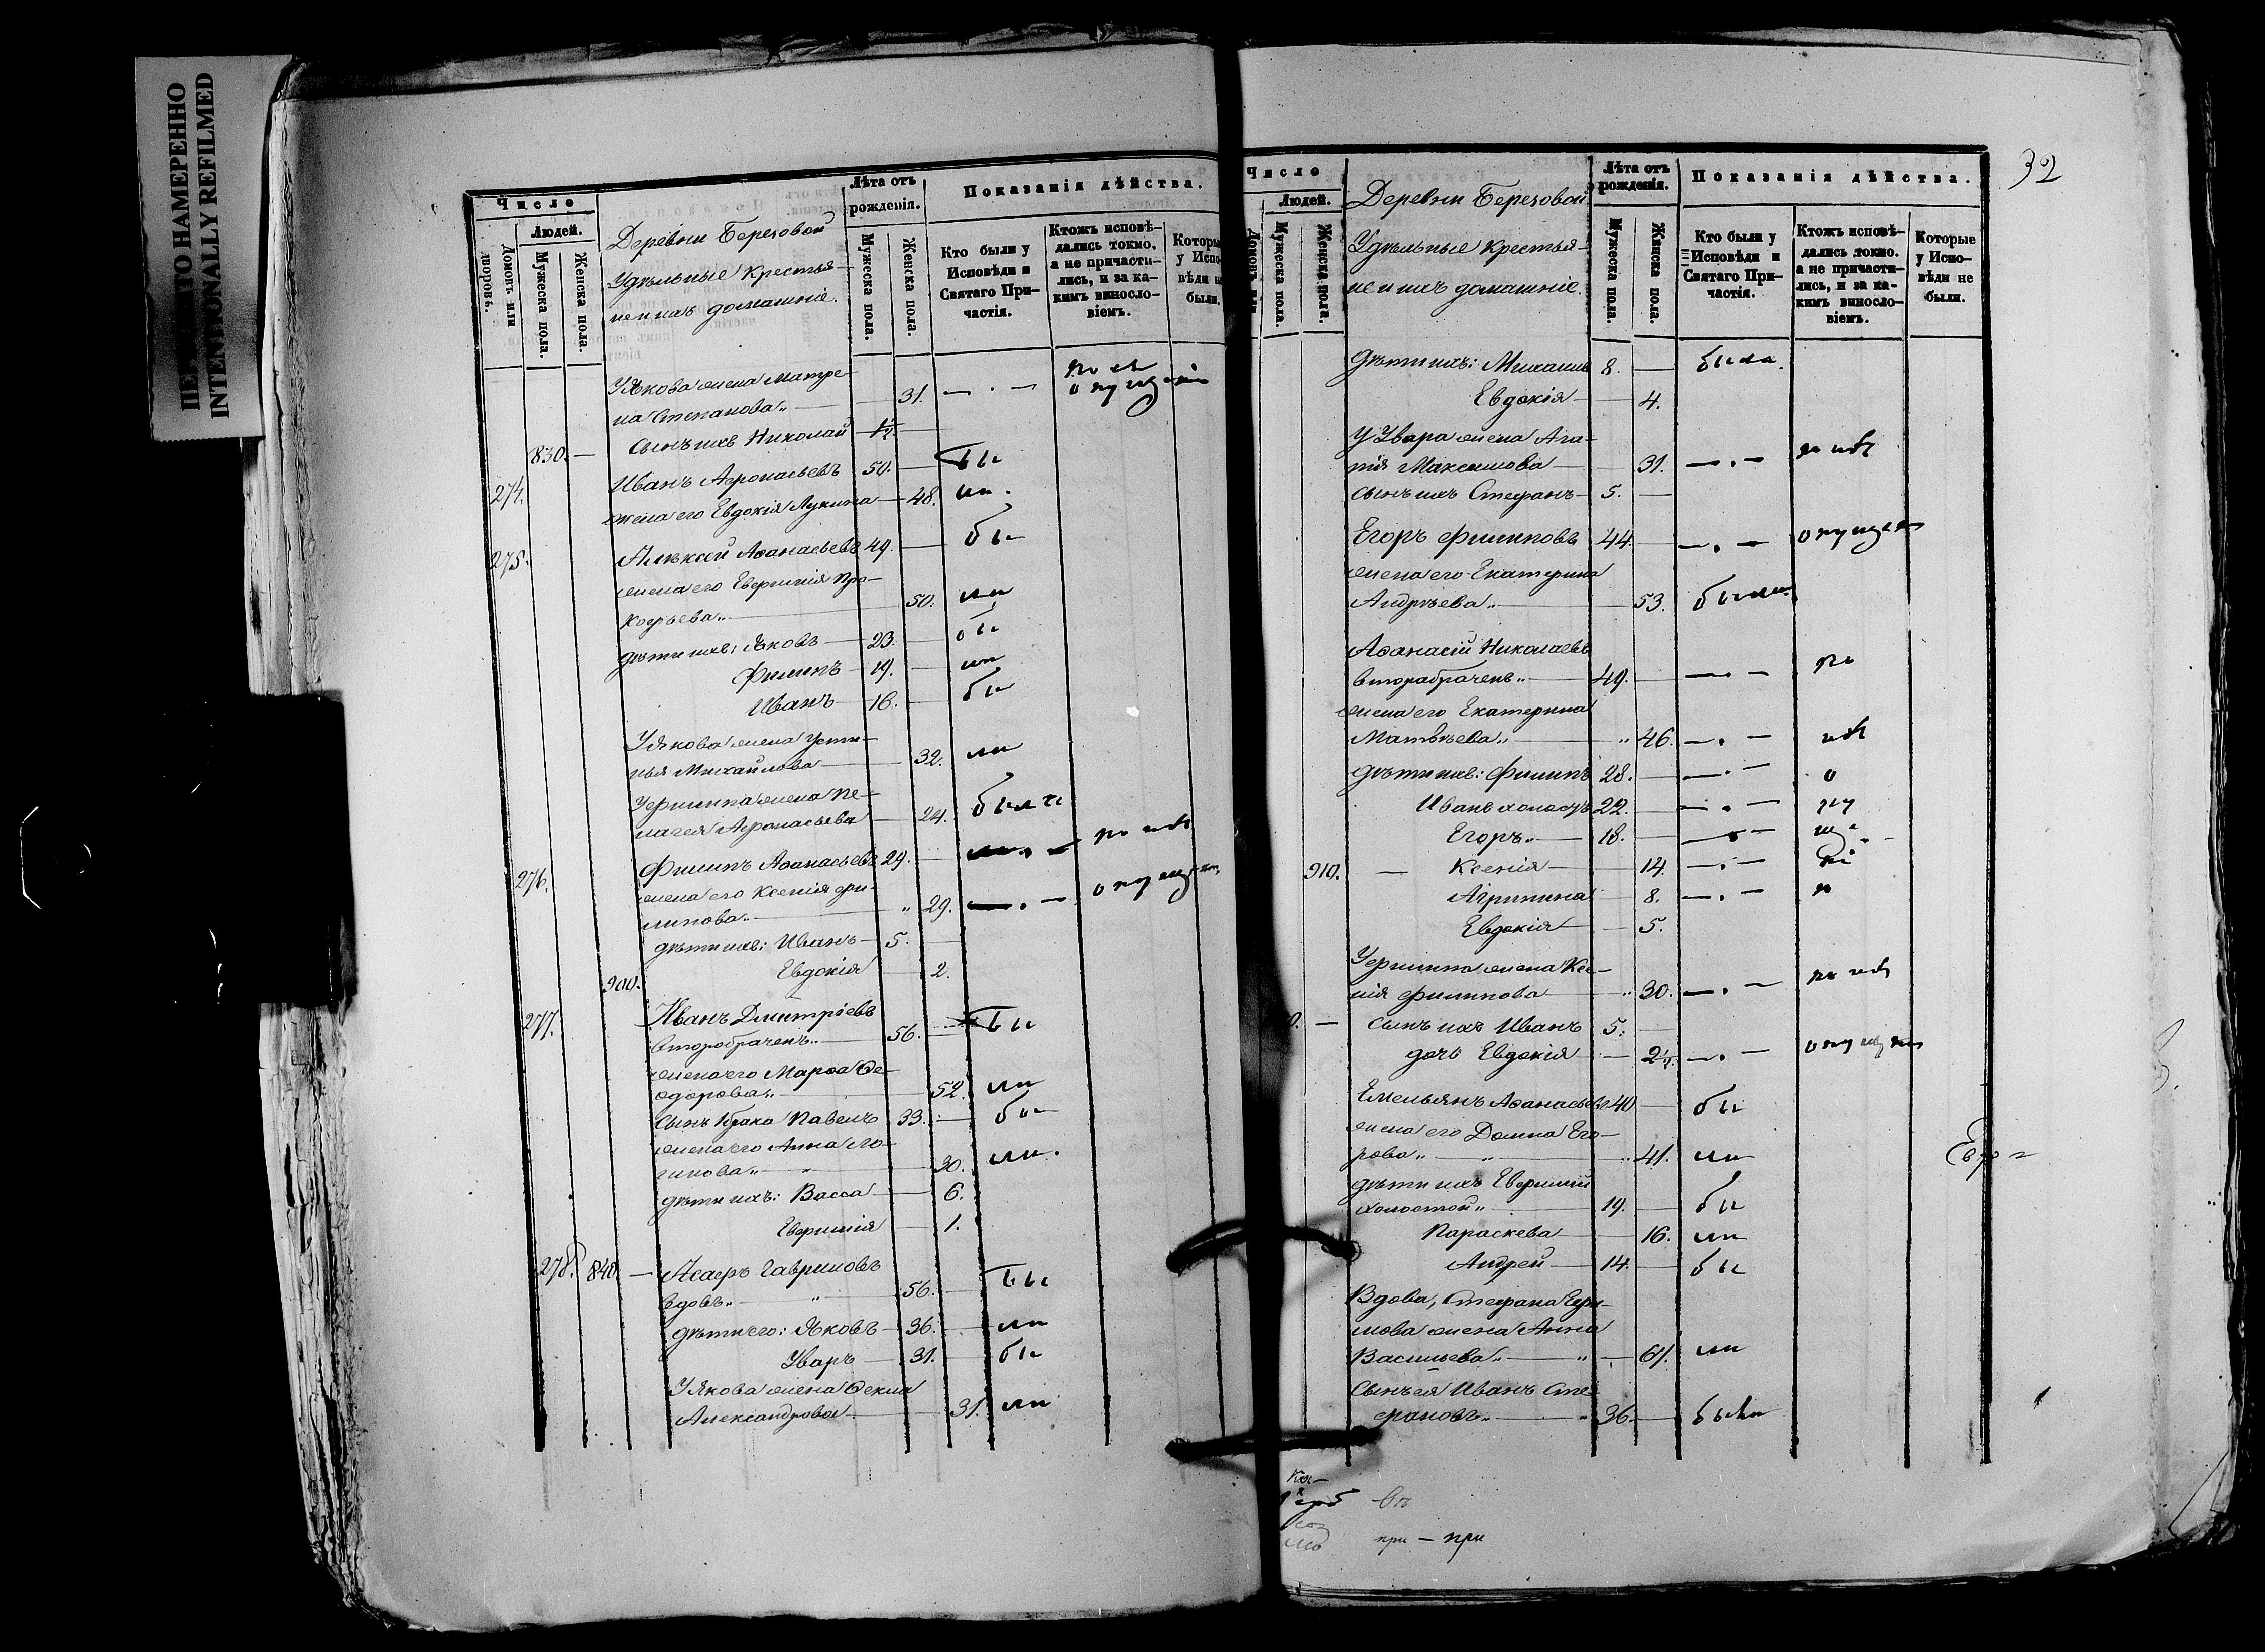 НАМЕРЕННО
INTENTIONALLY REFILMED
Число
Людей.
Домовъ или дворовъ.
Мужеска пола.
Женска пола.
Деревни Березовой
Удѣльные крестья-
не и ихъ домашніе.
Лѣта отъ
рожденія.
Мужеска пола.
Женска пола.
Показанія дѣйства.
Кто были у
Исповѣди и
Святаго При-
частія.
Ктожъ исповѣ-
дались токмо,
а не причасти-
лись, и за ка-
кимъ винosло-
віемъ.
У Якова жена Матре-
на Степанова 31.
830. — сынъ ихъ Николай 1/2
274. Иванъ Афонасьевъ 50. бы
жена его Евдокія Лукина 48. ли.
275. Алексѣй Аѳанасьевъ 49. бы
жена его Евфимія Про-
кофьева 50. ли
дѣти ихъ: Яковъ 23. бы
Филипъ 19. ли
Иванъ 16. бы
У Якова жена Усти-
нья Михайлова 32. ли
У Филипа жена Пе-
лагея Афонасьева 24. были
276. Филипъ Аѳанасьевъ 29. по неб
жена его Ксенія Фи-
липова 29. опущен
дѣти ихъ: Иванъ 5.
900. Евдокія 2.
277. Иванъ Дмитріевъ
второбраченъ 56. бы
жена его Марѳа Ѳе-
одорова 52. ли
сынъ 1 брака Павелъ 33. бы
жена его Анна Ло-
гинова 30. ли.
дѣти ихъ: Васса 6.
Евфимія 1.
278. 840. — Асафъ Гавриловъ
вдовъ 56. бы
дѣти его: Яковъ 36. ли
Уваръ 31. бы
У Якова жена Ѳекла
Александрова 31. ли
32
Число
Людей.
Мужеска пола.
Женска пола.
Деревни Березовой
Удѣльные крестья-
не и ихъ домашніе.
Лѣта отъ
рожденія.
Мужеска пола.
Женска пола.
Показанія дѣйства.
Кто были у
Исповѣди и
Святаго При-
частія.
Ктожъ исповѣ-
дались токмо,
а не причасти-
лись, и за ка-
кимъ винosло-
віемъ.
Которые
у Испо-
вѣди не
были.
дѣти ихъ: Михаилъ 8. была
Евдокія 4.
У Увара жена Ага-
пія Максимова 31. по неб
сынъ ихъ Стефанъ 5.
Егоръ Филиповъ 44. опущен
жена его Екатерина
Андрѣева 53. была
Аѳанасій Николаевъ
вторабраченъ 49. по
жена его Екатерина
Матвѣева 46. неб
дѣти ихъ: Филипъ 28. о
Иванъ холостъ 22. пу
Егоръ 18. ще
910. — Ксенія 14. ні
Агрипина 8.
Евдокія 5.
У Филипа жена Ксе-
нія Филипова 30. по неб
сынъ ихъ Иванъ 5.
дочь Евдокія 2 1/2 опущен
Емельянъ Аѳанасьевъ 40 бы
жена его Домна Его-
рова 41. ли
дѣти ихъ Евфимій
холостой 19. бы
Параскева 16. ли
Андрей 14. бы
Вдова, Стефана Ефи-
мова жена Анна
Васильева 61. ли
Сынъ ея Иванъ Сте-
фановъ 36. были
при — при